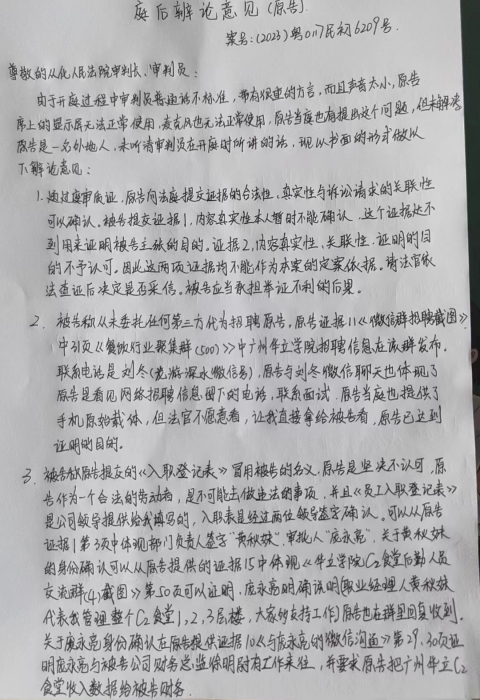 庭后辩论意见(原告)
案号:(2023)粤0117民初6209号.
尊敬的从化人民法院审判长、审判员:
由于开庭过程中审判员普通话不标准,带有很重的方言,而且声音太小,原告
席上的显示屏无法正常使用,麦克风也无法正常使用,原告当庭也有提出这个问题,但未解决
原告是一名外地人,未听清审判员在开庭时所讲的话,现以书面的形式做以
下辩论意见:
1、通过庭审质证,原告向法庭提交证据的合法性、真实性与诉讼请求的关联性
可以确认。被告提交证据1,内容真实性本人暂时不能确认,这个证据达不
到用来证明被告主张的目的。证据2,内容真实性、关联性、证明的目
的不予认可。因此这两项证据均不能作为本案的定案依据。请法官依
法查证后决定是否采信。被告应当承担举证不利的后果。
2、被告称从未委托任何第三方代为招聘原告,原告证据11《微信群招聘截图》
中31页《餐饮行业聚集群(500)》中广州华立学院招聘信息在该群发布,
联系电话是刘冬(龙游深水微信号),原告与刘冬微信聊天也体现了
原告是看见网络招聘信息留下的电话,联系面试,原告当庭也提供了
手机原始载体,但法官不愿意看,让我直接拿给被告看,原告已达到
证明的目的。
3、被告称原告提交的《入职登记表》冒用被告的名义,原告是坚决不认可,原
告作为一个合法的劳动者,是不可能去做违法的事项,并且《员工入职登记表》
是公司领导提供给我填写的,入职表是经过两位领导签字确认。可以从原告
证据1第3项中体现部门负责人签字"黄秋妹",审批人"庞永亮",关于黄秋妹
的身份确认可以从原告提供的证据15中体现《华立学院C2食堂后勤人员
交流群(4)截图》第50页可以证明,庞永亮明确说明职业经理人黄秋妹
代表我管理整个C2食堂1,2,3层楼,大家的支持工作)原告也在群里回复收到。
关于庞永亮身份确认在原告提供证据10《与庞永亮的微信沟通》第29、30页证
明庞永亮与被告公司财务总监徐明尉有工作来往,并要求原告把广州华立C2
食堂收入数据给被告财务.